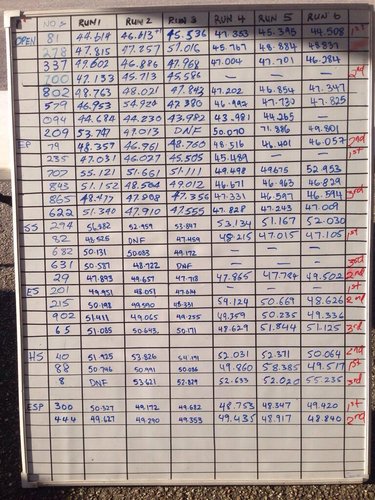 NO'S RUN 1 RUN 2 RUN 3 RUN 4 RUN 5 RUN 6
OPEN 81 44.619 46.413 45.536 47.353 45.395 44.508 1st
278 47.815 47.257 51.016 45.767 48.884 48.837
337 49.602 46.886 47.968 47.004 47.701 46.284
700 47.133 45.713 45.586 — — — 2nd
802 48.763 48.021 47.843 47.202 46.854 47.347
579 46.953 54.924 47.380 46.992 47.730 47.825
094 44.684 44.230 43.982 43.981 44.265 —
209 53.747 49.013 DNF 50.070 71.886 49.801
EP 79 48.357 46.961 48.760 48.516 46.401 46.057 2nd
235 47.031 46.027 45.505 45.489 — — 1st
707 55.121 51.661 51.111 49.498 49.675 52.953
843 51.152 48.504 49.012 46.671 46.963 46.829
865 48.477 47.208 47.356 47.331 46.597 46.594 3rd
622 51.340 47.910 47.565 47.828 47.243 47.009
SS 294 56.382 52.959 53.847 53.134 51.167 52.030
82 48.526 DNF 47.459 48.215 47.015 47.105 1st
682 50.131 50.033 49.172 — — —
631 50.587 48.722 DNF — — — 3rd
29 47.893 49.657 47.718 47.865 47.784 49.502 2nd
ES 201 49.951 48.051 47.641 — — — 1st
215 50.198 49.590 48.331 59.124 50.669 48.626 2nd
902 51.411 49.065 49.255 49.359 50.235 49.336
65 51.085 50.643 50.171 48.629 51.844 51.125 3rd
HS 40 51.925 53.826 54.191 52.031 52.371 50.064 2nd
88 50.746 50.991 50.036 49.860 58.385 49.517 1st
8 DNF 53.621 52.829 52.633 52.020 55.235 3rd
ESP 300 50.327 49.172 49.682 48.753 48.347 49.420 1st
444 49.627 49.290 49.353 49.435 48.917 48.840 2nd